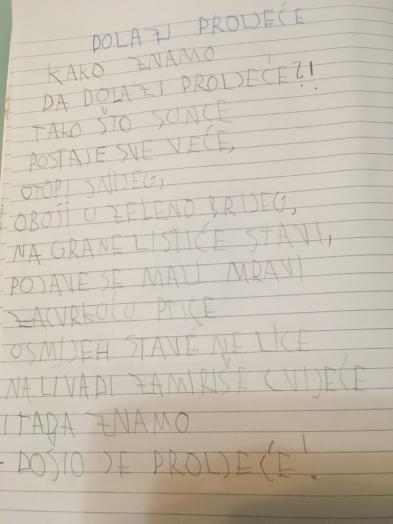 DOLAZI PROLJEĆE
KAKO ZNAMO
DA DOLAZI PROLJEĆE?!
TAKO ŠTO SUNCE
POSTAJE SVE VEĆE,
OTOPI SNIJEG,
OBOJI U ZELENO BRIJEG,
NA GRANE LISTIĆE STAVI,
POJAVE SE MALI MRAVI
ZACVRKUĆU PTICE
OSMIJEH STAVE NE LICE
NA LIVADI ZAMIRIŠE CVIJEĆE
I TADA ZNAMO
- DOŠLO JE PROLJEĆE!